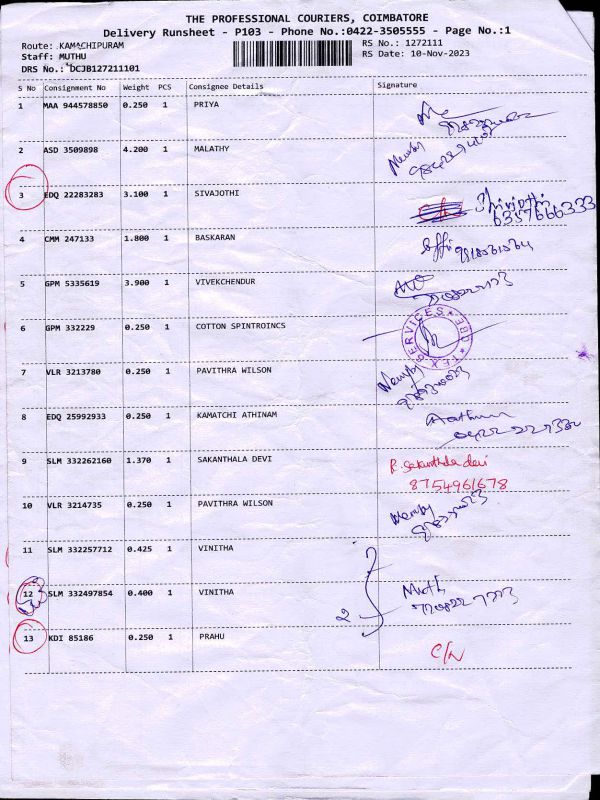 THE PROFESSIONAL COURIERS, COIMBATORE
Delivery Runsheet - P103 - Phone No.:0422-3505555 - Page No.:1
Route: KAMACHIPURAM RS No.: 1272111
Staff: MUTHU RS Date: 10-Nov-2023
DRS No.: DCJB127211101
S No Consignment No Weight PCS Consignee Details Signature
1 MAA 944578850 0.250 1 PRIYA
2 ASD 3509898 4.200 1 MALATHY
3 EDQ 22283283 3.100 1 SIVAJOTHI
6357666333
4 CMM 247133 1.800 1 BASKARAN
5 GPM 5335619 3.900 1 VIVEKCHENDUR
6 GPM 332229 0.250 1 COTTON SPINTROINCS
SERVICES
7 VLR 3213780 0.250 1 PAVITHRA WILSON
8 EDQ 25992933 0.250 1 KAMATCHI ATHINAM
9 SLM 332262160 1.370 1 SAKANTHALA DEVI R. Sakanthala devi
8754961678
10 VLR 3214735 0.250 1 PAVITHRA WILSON
11 SLM 332257712 0.425 1 VINITHA
12 SLM 332497854 0.400 1 VINITHA
2
13 KDI 85186 0.250 1 PRAHU C/N